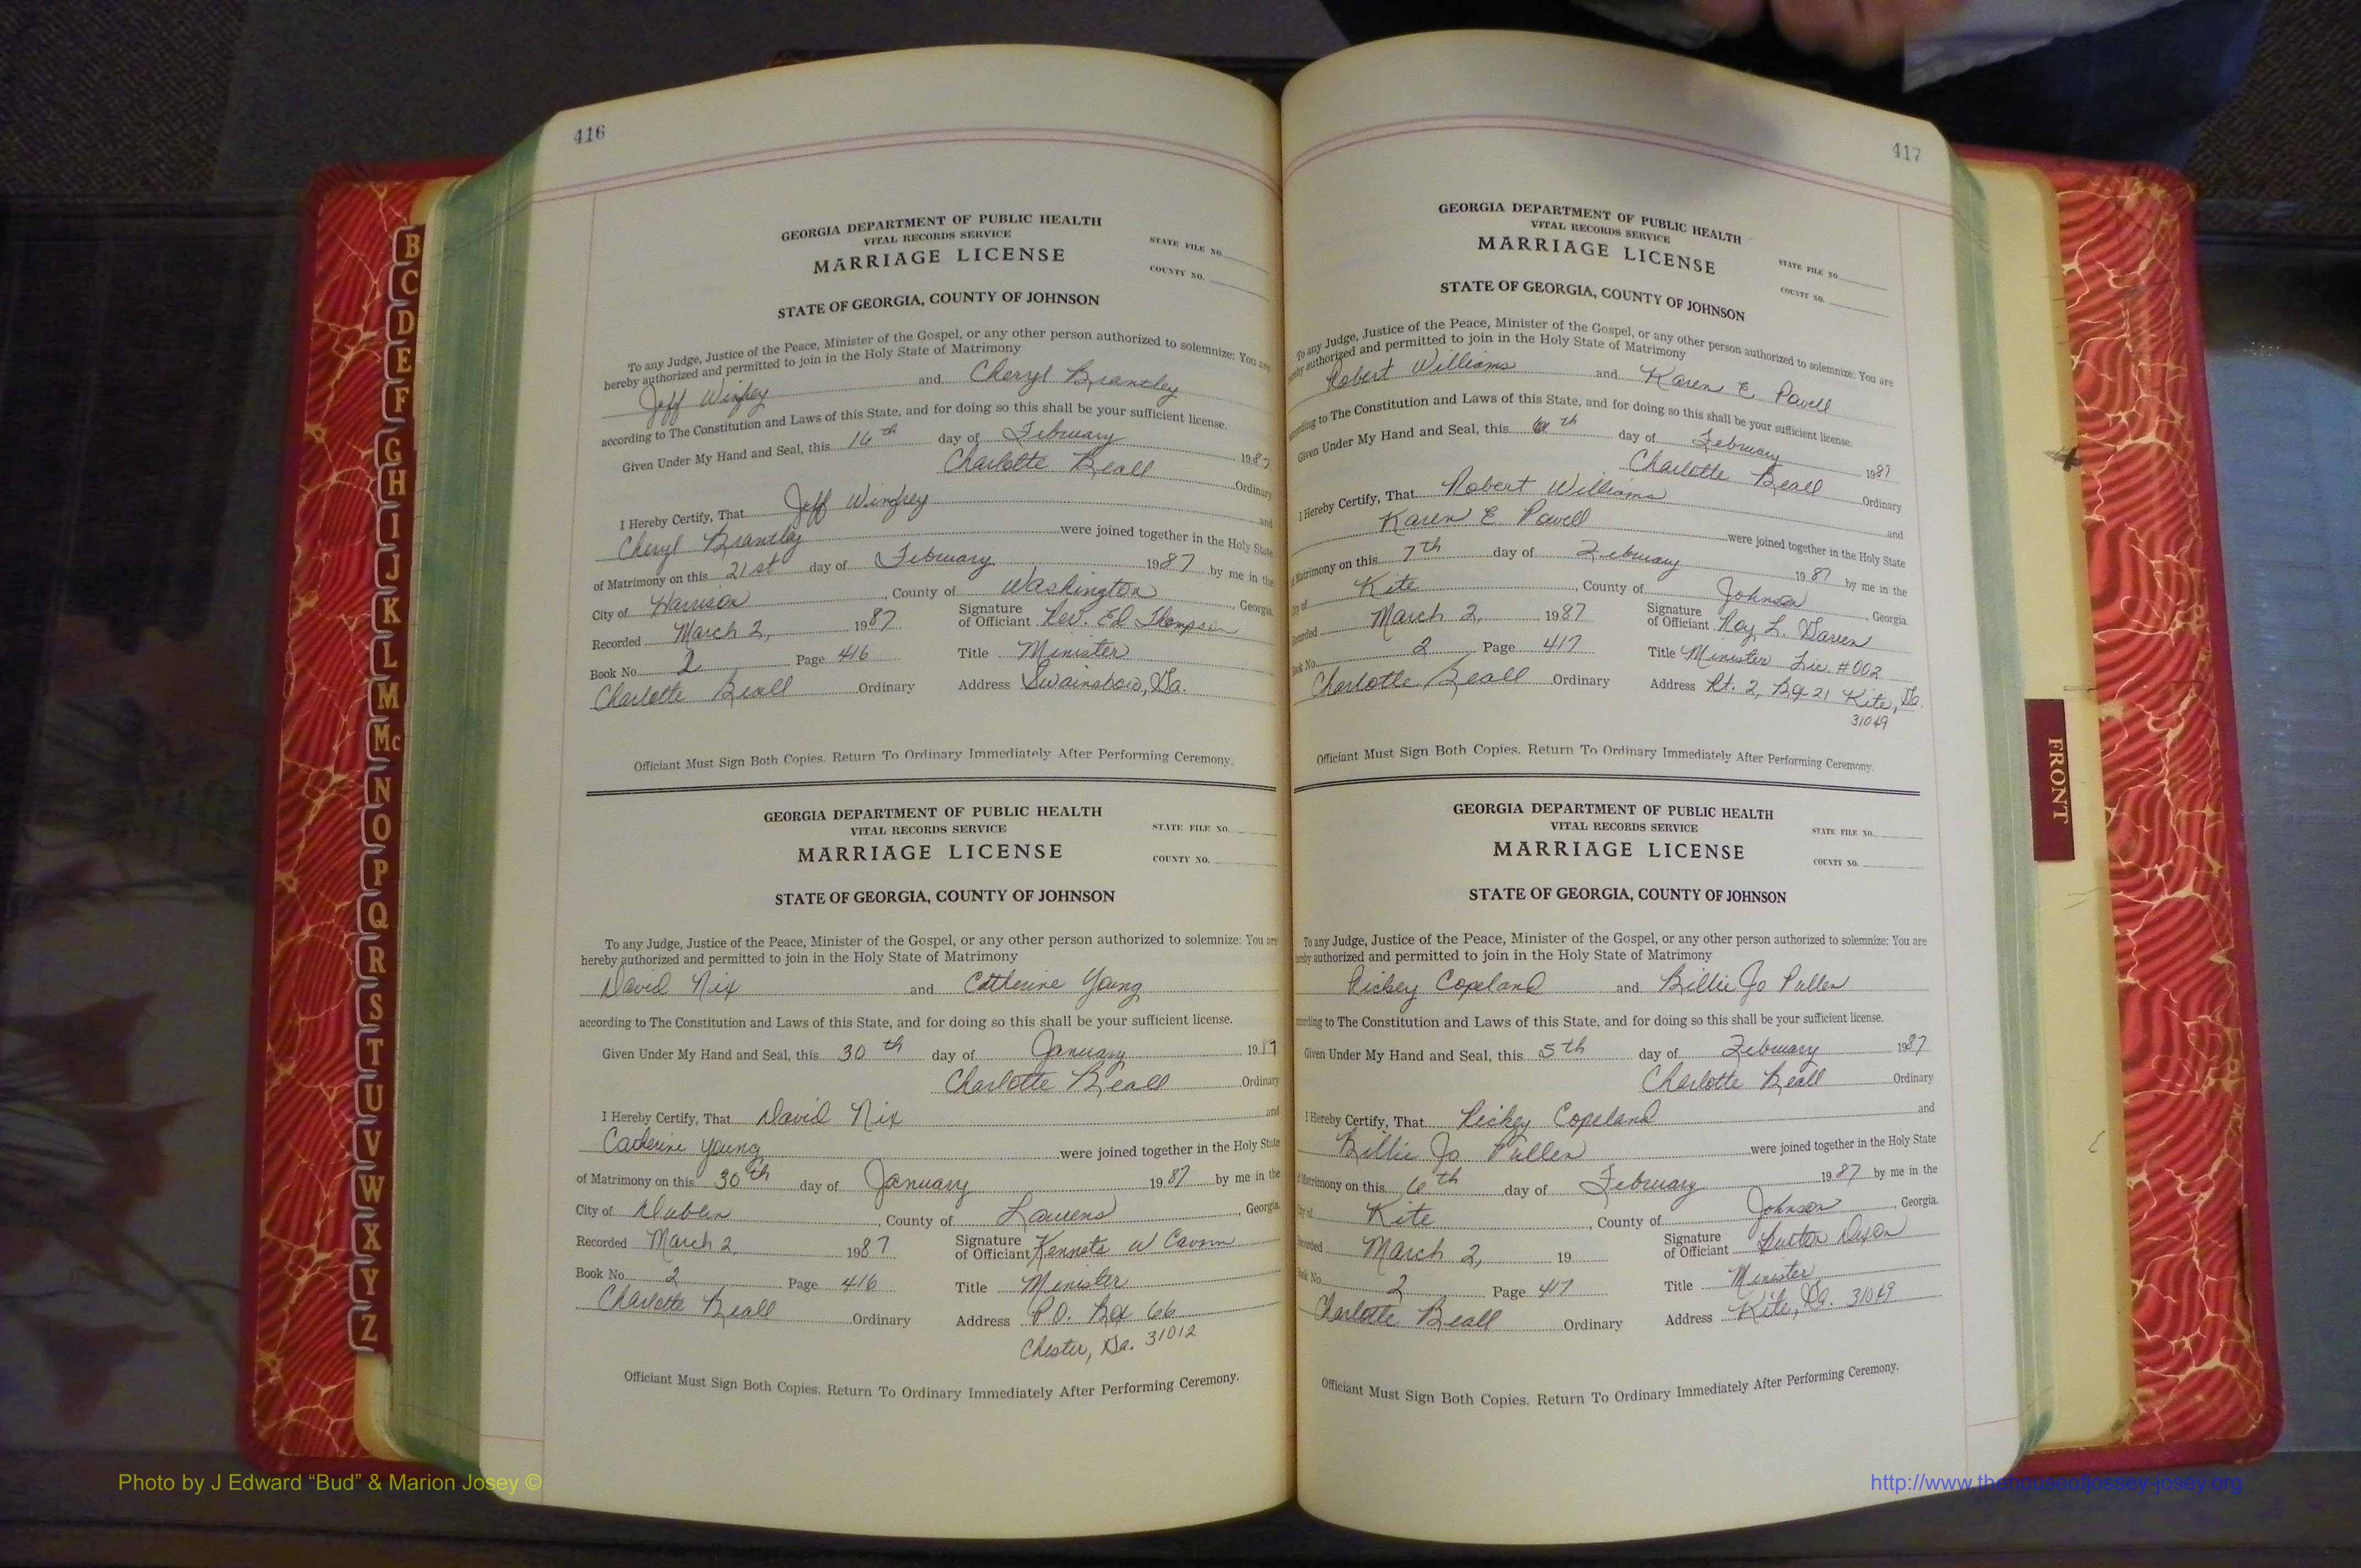 416
GEORGIA DEPARTMENT OF PUBLIC HEALTH
VITAL RECORDS SERVICE
MARRIAGE LICENSE
STATE FILE NO.
COUNTY NO.
STATE OF GEORGIA, COUNTY OF JOHNSON
To any Judge, Justice of the Peace, Minister of the Gospel, or any other person authorized to solemnize: You are
hereby authorized and permitted to join in the Holy State of Matrimony
Jeff Winfrey and Cheryl Brantley
according to The Constitution and Laws of this State, and for doing so this shall be your sufficient license.
Given Under My Hand and Seal, this 16th day of February 1987
Charlotte Beall Ordinary
I Hereby Certify, That Jeff Winfrey and
Cheryl Brantley were joined together in the Holy State
of Matrimony on this 21st day of February 1987 by me in the
City of Harrison, County of Washington, Georgia
Recorded March 2, 1987 Signature of Officiant Rev. Ed Thompson
Book No. 2 Page 416 Title Minister
Charlotte Beall Ordinary Address Swainsboro, Ga.
Officiant Must Sign Both Copies. Return To Ordinary Immediately After Performing Ceremony.
GEORGIA DEPARTMENT OF PUBLIC HEALTH
VITAL RECORDS SERVICE
MARRIAGE LICENSE
STATE FILE NO.
COUNTY NO.
STATE OF GEORGIA, COUNTY OF JOHNSON
To any Judge, Justice of the Peace, Minister of the Gospel, or any other person authorized to solemnize: You are
hereby authorized and permitted to join in the Holy State of Matrimony
David Nix and Catherine Young
according to The Constitution and Laws of this State, and for doing so this shall be your sufficient license.
Given Under My Hand and Seal, this 30th day of January 1987
Charlotte Beall Ordinary
I Hereby Certify, That David Nix and
Catherine Young were joined together in the Holy State
of Matrimony on this 30th day of January 1987 by me in the
City of Dublin, County of Laurens, Georgia
Recorded March 2 1987 Signature of Officiant Kenneth W
Book No. 2 Page 416 Title Minister
Charlotte Beall Ordinary Address P.O. Box 66
Chester, Ga. 31012
Officiant Must Sign Both Copies. Return To Ordinary Immediately After Performing Ceremony.
417
GEORGIA DEPARTMENT OF PUBLIC HEALTH
VITAL RECORDS SERVICE
MARRIAGE LICENSE
STATE FILE NO.
COUNTY NO.
STATE OF GEORGIA, COUNTY OF JOHNSON
To any Judge, Justice of the Peace, Minister of the Gospel, or any other person authorized to solemnize: You are
hereby authorized and permitted to join in the Holy State of Matrimony
Robert Williams and Karen E. Powell
according to The Constitution and Laws of this State, and for doing so this shall be your sufficient license.
Given Under My Hand and Seal, this 6th day of February 1987
Charlotte Beall Ordinary
I Hereby Certify, That Robert Williams and
Karen E Powell were joined together in the Holy State
of Matrimony on this 7th day of February 1987 by me in the
City of Kite, County of Johnson, Georgia
Recorded March 2, 1987 Signature of Officiant Roy L.
Book No. 2 Page 417 Title Minister Lic. #002
Charlotte Beall Ordinary Address Rt. 2, Box 21 Kite, Ga.
31049
Officiant Must Sign Both Copies. Return To Ordinary Immediately After Performing Ceremony.
GEORGIA DEPARTMENT OF PUBLIC HEALTH
VITAL RECORDS SERVICE
MARRIAGE LICENSE
STATE FILE NO.
COUNTY NO.
STATE OF GEORGIA, COUNTY OF JOHNSON
To any Judge, Justice of the Peace, Minister of the Gospel, or any other person authorized to solemnize: You are
hereby authorized and permitted to join in the Holy State of Matrimony
Rickey Copeland and Billie Jo Pullen
according to The Constitution and Laws of this State, and for doing so this shall be your sufficient license.
Given Under My Hand and Seal, this 5th day of February 1987
Charlotte Beall Ordinary
I Hereby Certify, That Rickey Copeland and
Billie Jo Pullen were joined together in the Holy State
of Matrimony on this 6th day of February 1987 by me in the
City of Kite, County of Johnson, Georgia
Recorded March 2, 19 Signature of Officiant
Book No. 2 Page 417 Title Minister
Charlotte Beall Ordinary Address Kite, Ga. 31049
Officiant Must Sign Both Copies. Return To Ordinary Immediately After Performing Ceremony.
B
C
D
E
F
G
H
I
J
K
L
M
Mc
N
O
P
Q
R
S
T
U
V
W
X
Y
Z
FRONT
Photo by J Edward “Bud” & Marion Josey ©
http://www.thehouseofjossey-josey.org